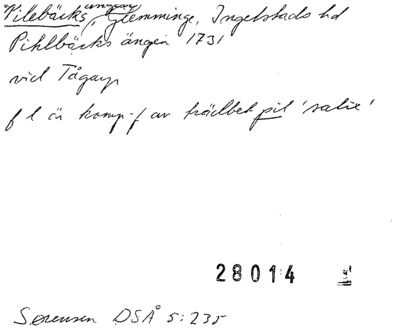 Pilebäcks ängar, Glemminge, Ingelstads hd
Pihlbäcks ängen 1731
vid Tågarp
f l är komp.f av trädbet pil 'salix'
28014
Sørensen DSÅ 5:235